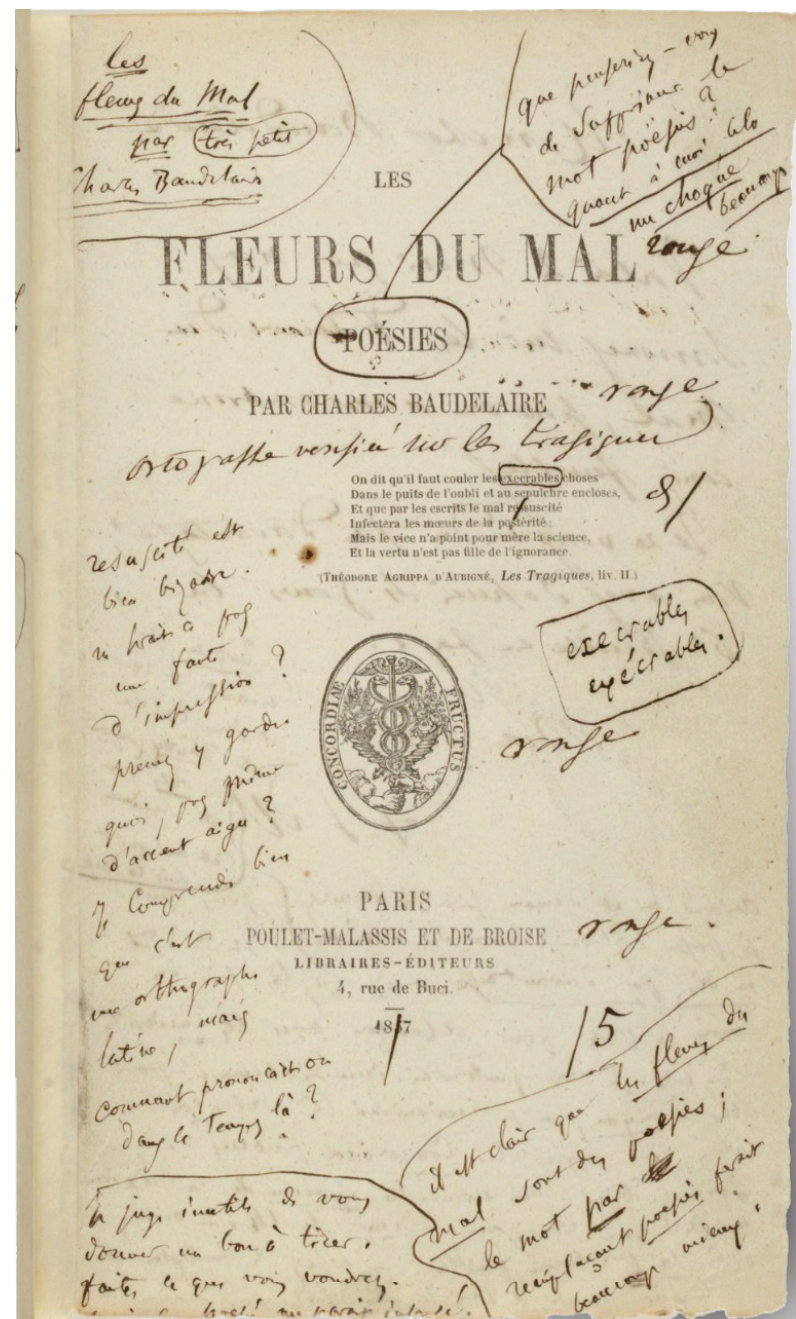 les
fleurs du Mal
par très petit
Charles Baudelaire
que penseriez-vous
de supprimer le
mot poësies?
quant à moi cela
me choque
beaucoup
LES
FLEURS DU MAL
rouge.
POÉSIES
PAR CHARLES BAUDELAIRE
rouge
sur les tragiques
On dit qu'il faut couler les execrables choses
Dans le puits de l'oubli et au sepulchre encloses,
Et que par les escrits le mal ressuscité
Infectera les mœurs de la postérité;
Mais le vice n'a point pour mère la science,
Et la vertu n'est pas fille de l'ignorance.
(THÉODORE AGRIPPA D'AUBIGNÉ, Les Tragiques, liv. II.)
resuscité est
bien bizarre.
ne serait-ce pas
une faute
d'impression?
prenez y garde.
quoi, pas même
d'accent aigu?
je comprends bien
que c'est
une orthographe
latine, mais
comment prononçait-on
dans le temps là?
execrables
exécrables.
CONCORDIÆ FRUCTUS
rouge
PARIS
POULET-MALASSIS ET DE BROISE
rouge.
LIBRAIRES-ÉDITEURS
4, rue de Buci.
1857
/5
il est clair que les fleurs du
mal sont des poësies;
le mot par
remplaçant poësies ferait
beaucoup mieux.
Je juge inutile de vous
donner un bon à tirer.
faites ce que vous voudrez.